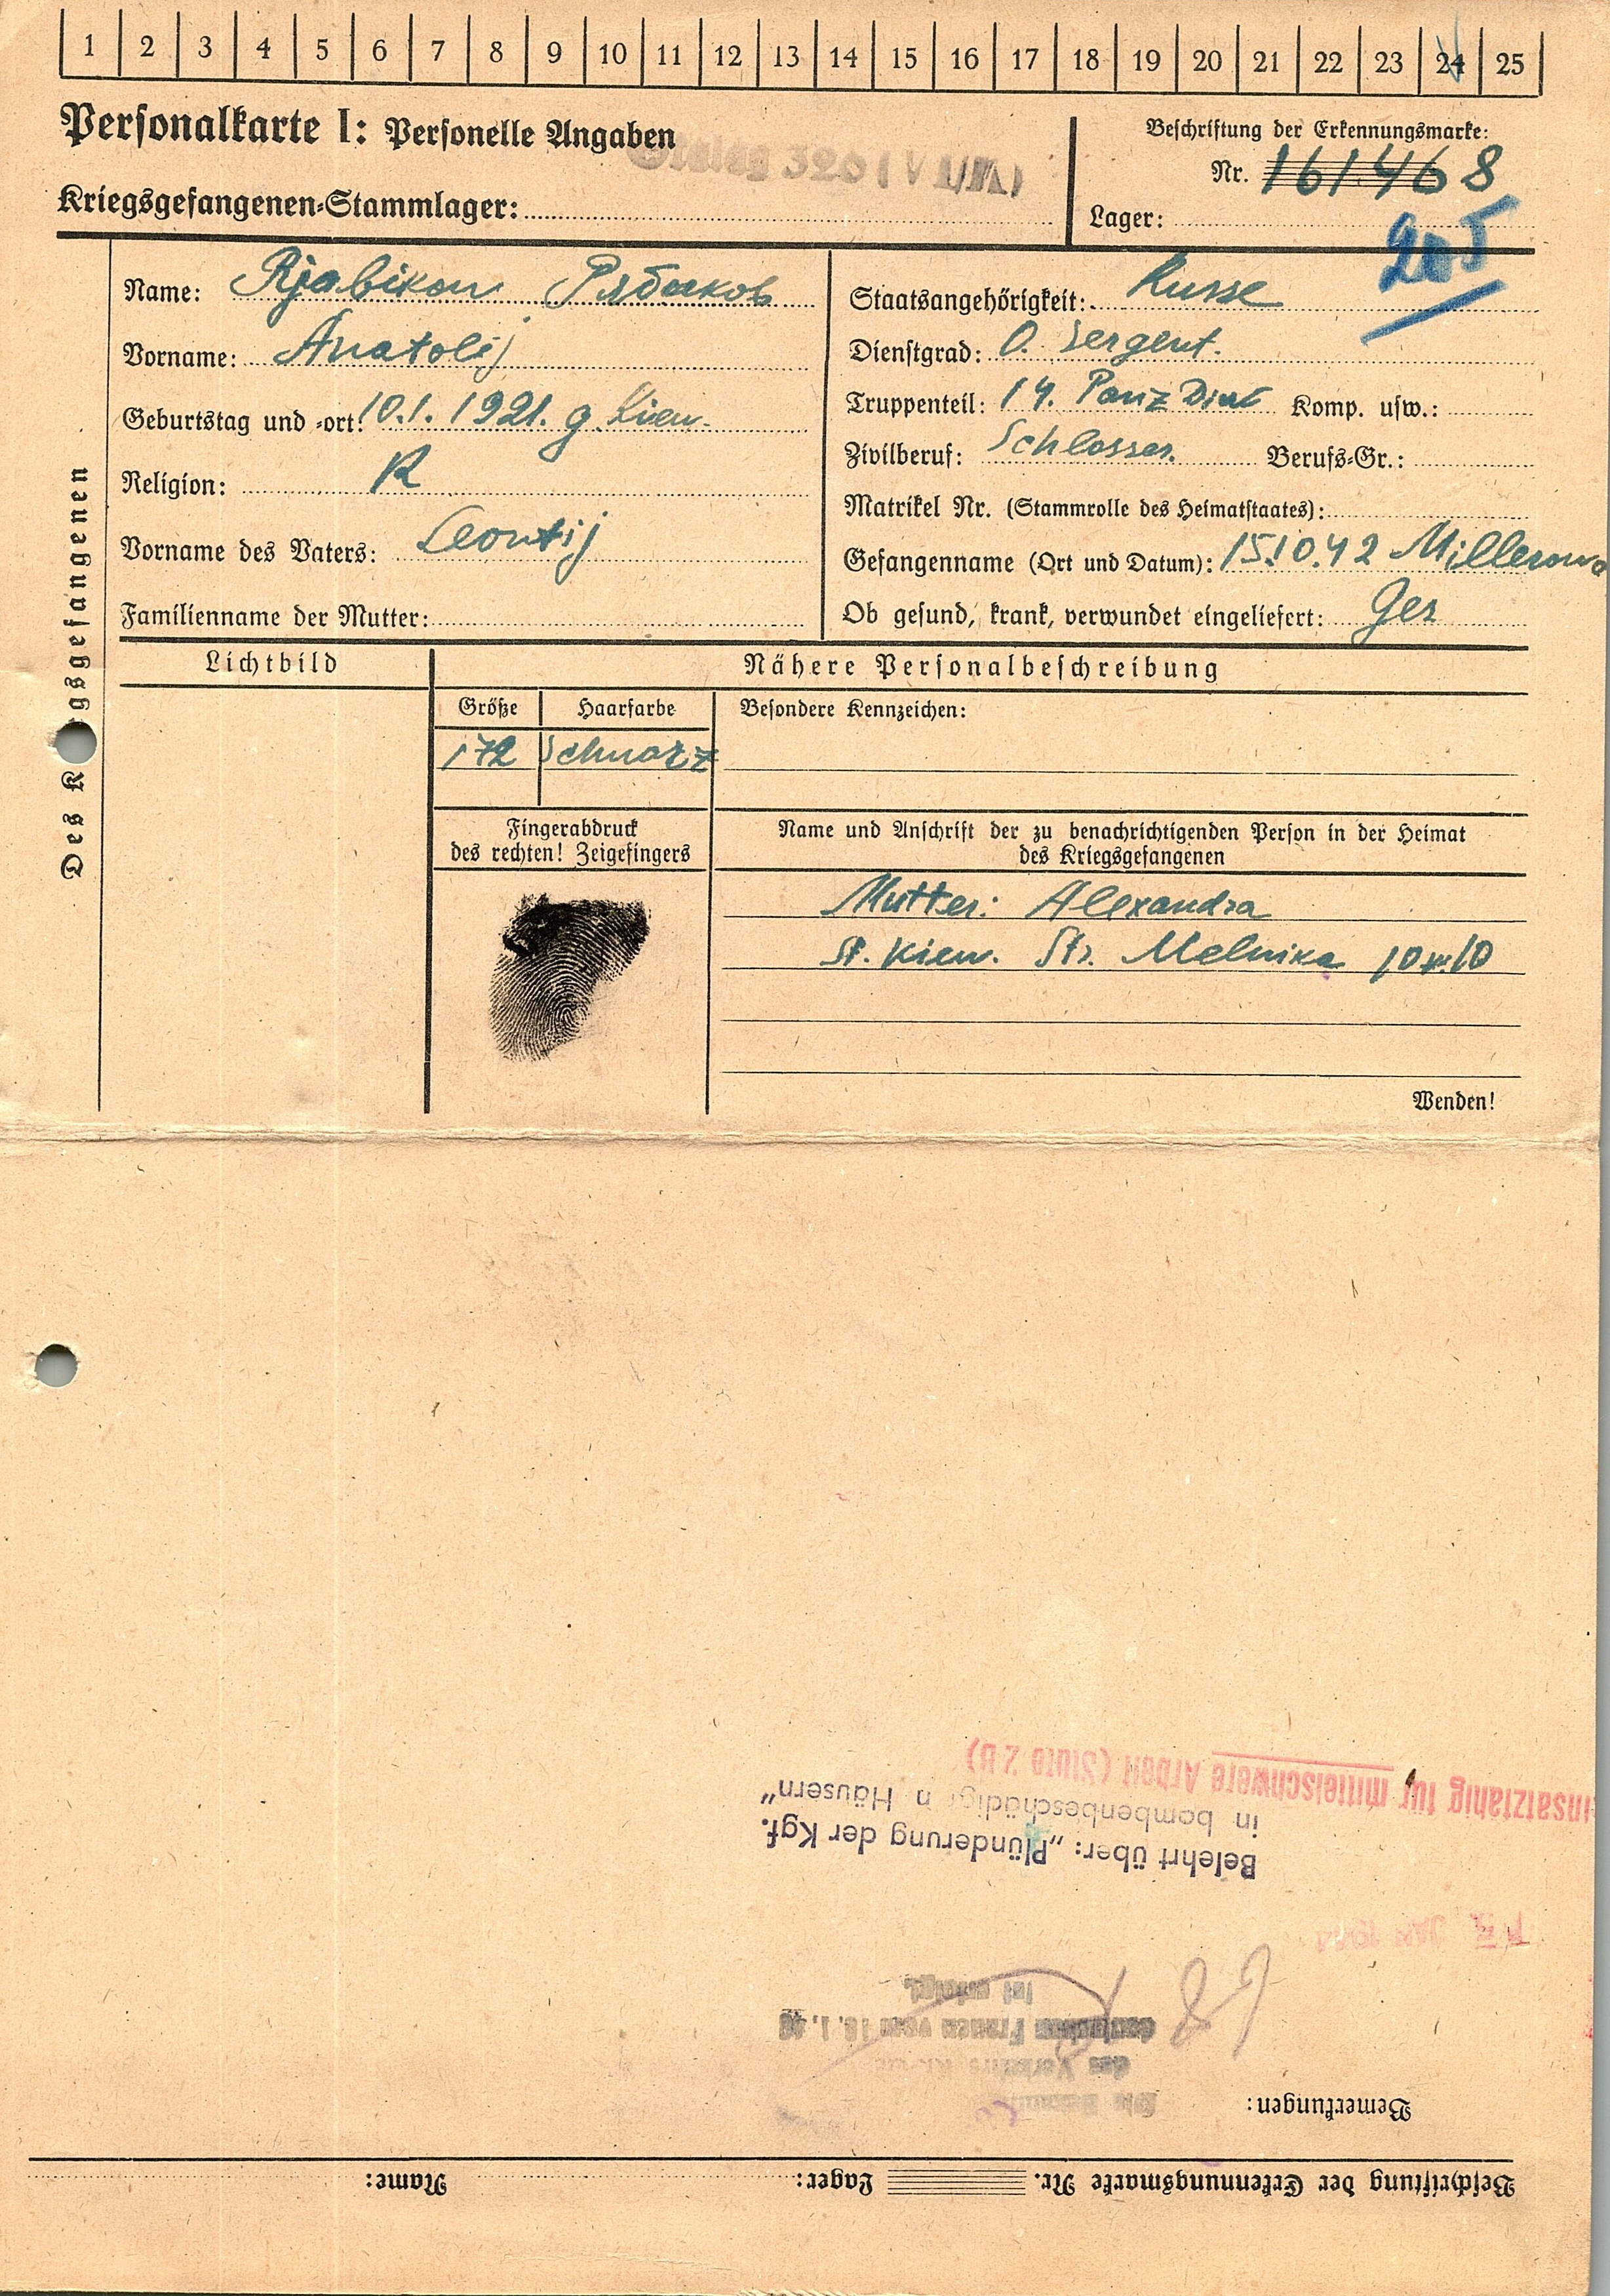 1 2 3 4 5 6 7 8 9 10 11 12 13 14 15 16 17 18 19 20 21 22 23 24 25
Personalkarte I: Personelle Angaben
Beschriftung der Erkennungsmarke:
320 (VI/K)
Nr. 161468
Kriegsgefangenen-Stammlager:
Lager:
205
Des K gsgefangenen
Name: Rjabikow Рябиковъ
Vorname: Anatolij
Geburtstag und -ort: 10.1.1921. g. Kiew.
Religion: R
Vorname des Vaters: Leontij
Familienname der Mutter:
Staatsangehörigkeit: Russe
Dienstgrad: O. Sergent.
Truppenteil: 14. Panz Komp. usw.:
Zivilberuf: Schlosser. Berufs-Gr.:
Matrikel Nr. (Stammrolle des Heimatstaates):
Gefangenname (Ort und Datum): 15.10.42 Millerowo
Ob gesund, krank, verwundet eingeliefert: Ges
Lichtbild
Nähere Personalbeschreibung
Größe Haarfarbe Besondere Kennzeichen:
172 Schwarz
Fingerabdruck
des rechten! Zeigefingers
Name und Anschrift der zu benachrichtigenden Person in der Heimat
des Kriegsgefangenen
Mutter: Alexandra
St. Kiew. Str. Melnika 10 10
Wenden!
Beschriftung der Erkennungsmarke Nr. Lager: Name:
Bemerkungen:
deutschen Frauen vom 16.1.43
ist erfolgt.
Belehrt über: „Plünderung der Kgf.
in bombenbeschädigt n Häusern"
insatzfähig für mittelschwere Arbeit (Stufe 2 B)